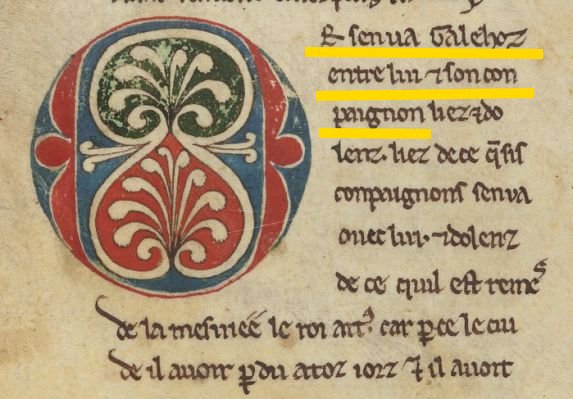 OR senua Galehoz
entre lui ⁊ son con
paignon liez ⁊ do
lenz. liez de ce q̃ sis
conpaignons senua
ouec lui. ⁊ dolenz
de ce quil est remes
de la mesniee le roi artꝰ. car ꝑ ce le cui
de il auoir ꝑdu a toz iorz ⁊ il auoit